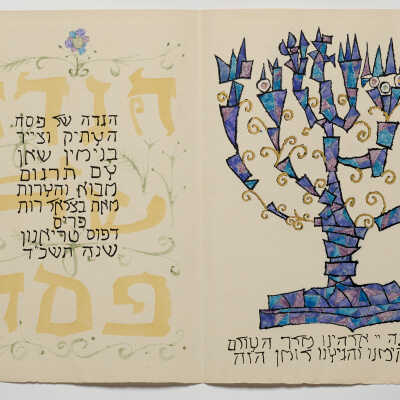 הגדה של פסח
העתיק וצייר
בנימין שאן
עם תרגום
מבוא והערות
מאת בצלאל רות
פריס
דפוס טריאנון
שנה
של
פסח
יי אלהינו מלך העולם
והגיענו לזמן הזה